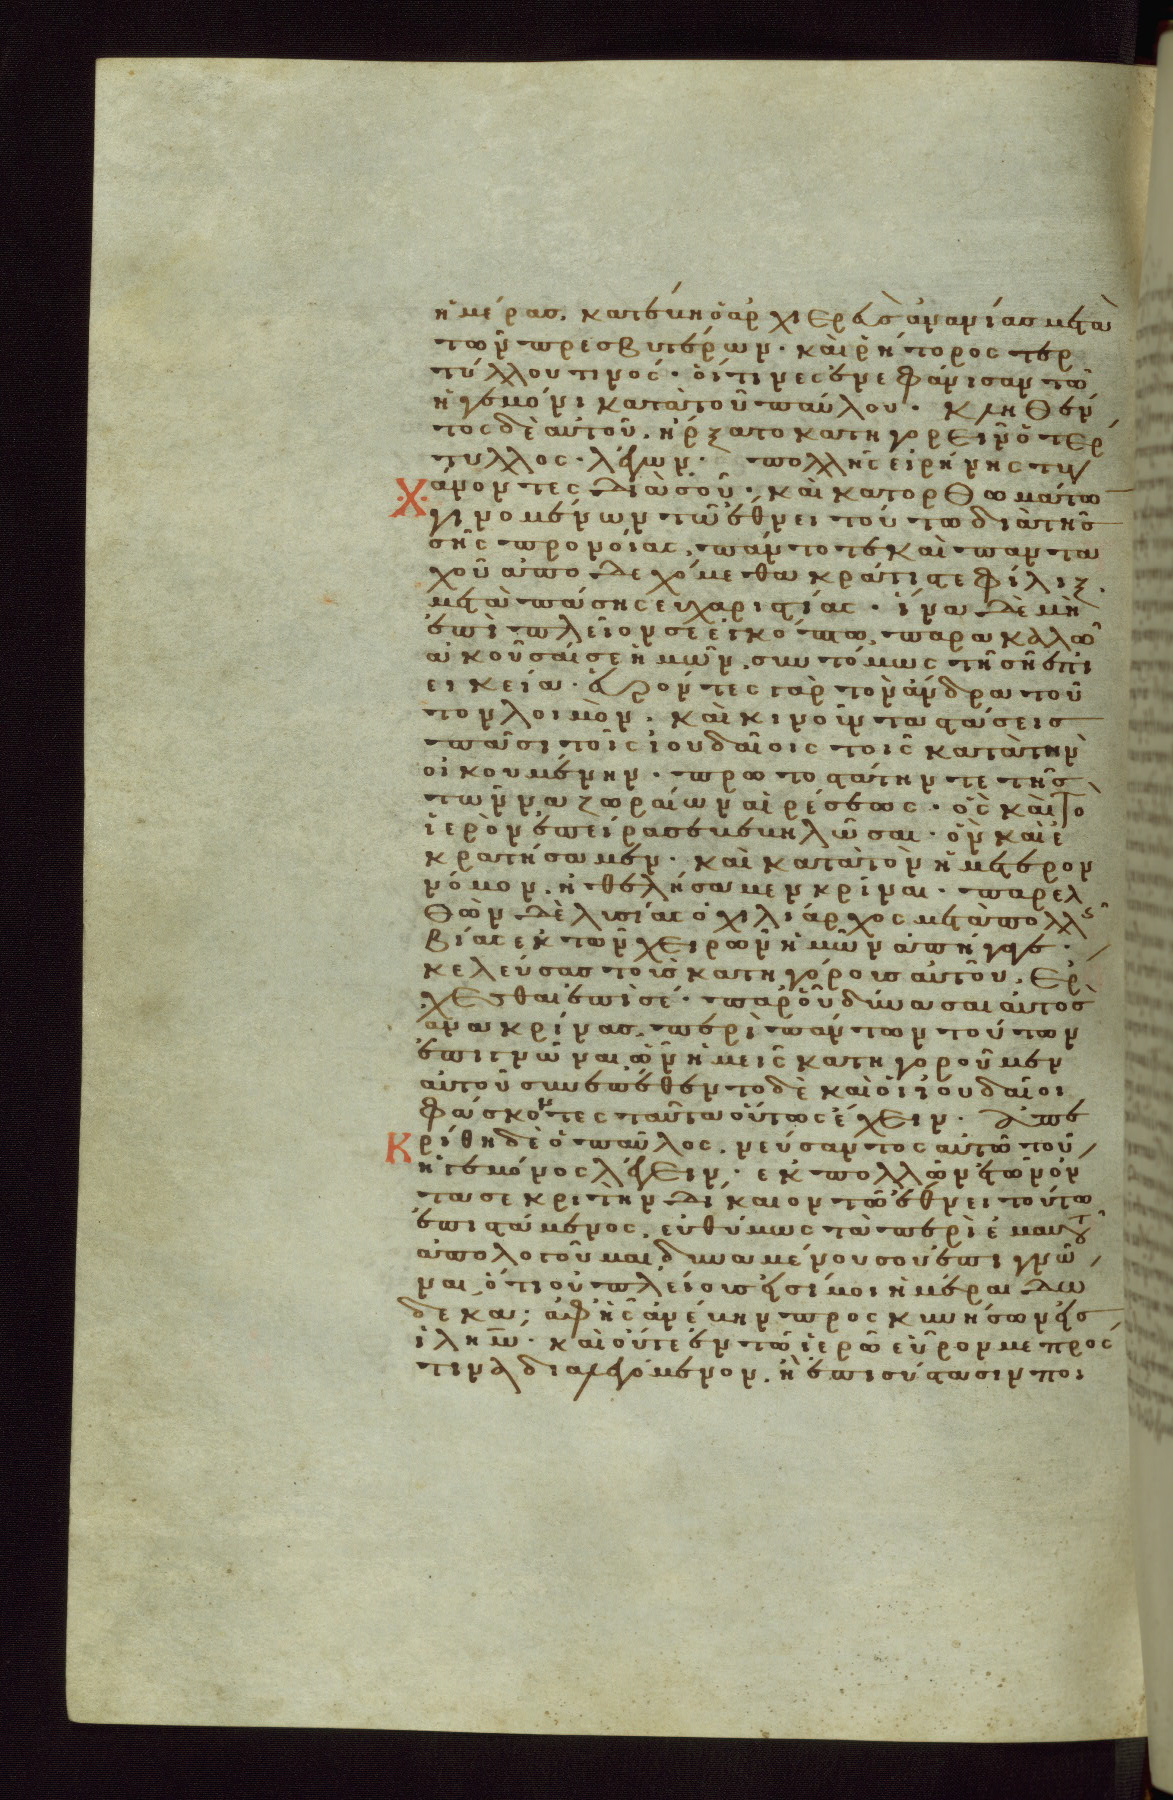 ἡμέρας. κατέβη ὁ ἀρχιερεὺς ἀνανίας μετὰ
τῶν πρεσβυτέρων· καὶ ῥήτορος τερ
τύλλου τινός· οἵτινες ἐνεφάνισαν τῶ
ἡγεμόνι κατὰ τοῦ παύλου. Κληθέν
τος δὲ αὐτοῦ. ἤρξατο κατηγορεῖν ὁ τέρ
τυλλος· λέγων· πολλῆς εἰρήνης τυγ
χάνοντες διὰ σοῦ· καὶ κατορθωμάτω
γινομένων τῶ ἔθνει τούτω διὰ τῆς
σῆς προνοίας, πάντοτε καὶ παντα
χοῦ ἀποδεχόμεθα κράτιστε φίλιξ.
μετὰ πάσης εὐχαριστίας· ἵνα δὲ μὴ
ἐπὶ πλεῖόν σε ἐγκόπτω, παρακαλῶ
ἀκοῦσαί σε ἡμῶν. συντόμως τῆ σῆ ἐπι
εικεία· εὑρόντες γὰρ τὸν ἄνδρα τοῦ
τον λοιμὸν. καὶ κινοῦντα στάσεις
πᾶσι τοῖς ἰουδαίοις τοῖς κατὰ τὴν
οἰκουμένην· πρωτοστάτην τε τῆς
τῶν ναζωραίων αἱρέσεως· ὃς καὶ τὸ
ἱερὸν ἐπείρασε βεβηλῶσαι· ὃν καὶ ἐ
κρατήσαμεν· καὶ κατὰ τὸν ἡμέτερον
νόμον. ἠθελήσαμεν κρίναι· παρελ
θὼν δὲ λυσίας ὁ χιλιάρχος μετὰ πολλῆς
βίας ἐκ τῶν χειρῶν ἡμῶν ἀπήγαγε·
κελεύσας τοῖς κατηγόροις αὐτοῦ. ἔρ
χεσθαι ἐπὶ σέ· παρ οὗ δύνασαι αὐτὸς
ἀνακρίνας. περὶ πάντων τούτων
ἐπιγνῶναι ὧν ἡμεῖς κατηγοροῦμεν
αὐτοῦ συνεπέθεντο δὲ καὶ οἱ ἰουδαῖοι
φάσκοντες ταῦτα οὕτως ἔχειν. Ἀπε
κρίθη δὲ ὁ παῦλος. νεύσαντος αὐτῶ τοῦ
ἡγεμόνος λέγειν· ἐκ πολλῶν ἐτῶν ὄν
τα σε κριτὴν δίκαιον τῶ ἔθνει τούτω
ἐπιστάμενος. εὐθύμως τὰ περὶ ἐμαυτοῦ
ἀπολογοῦμαι δυναμένου σου ἐπιγνῶ
ναι, ὅτι οὐ πλείους εἰσί μοι ἡμέραι δω
δεκα; ἀφ ἧς ἀνέβην προσκυνήσων εἰς
ἱλημ· καὶ οὔτε ἐν τῶ ἱερῶ εὗρόν με πρός
τινα διαλεγόμενον. ἢ ἐπισύστασιν ποι